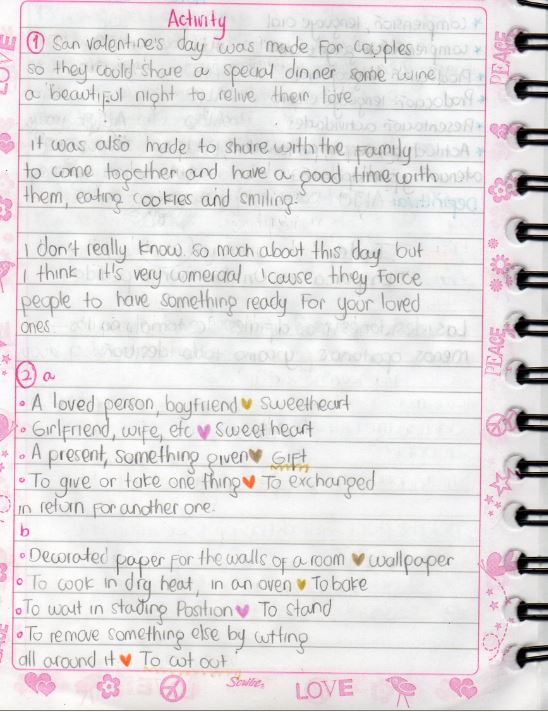 Activity
① San valentine's day was made for couples
so they could share a special dinner some wine
a beautiful night to relive their love.
it was also made to share with the family
to come together and have a good time with
them, eating cookies and smiling.
I don't really know so much about this day but
I think it's very comercial 'cause they force
people to have something ready for your loved
ones.
② a
• A loved person, boyfriend ♥ Sweetheart
• Girlfriend, wife, etc ♥ Sweetheart
• A present, something given ♥ Gift
• To give or take one thing ♥ To exchanged
in return for another one.
b
• Decorated paper for the walls of a room ♥ wallpaper
• To cook in dry heat, in an oven ♥ To bake
• To wait in stading Position ♥ To stand
• To remove something else by cutting
all around it ♥ To cut out
Scribe
LOVE
LOVE
PEACE
PEACE